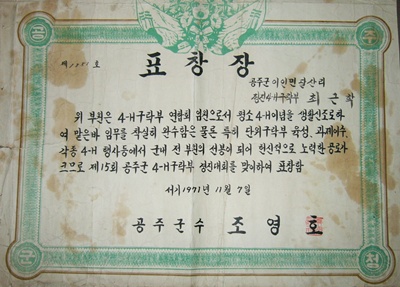 공 주
제 1981 호
표창장
공주군 이인면 달산리
4-H구락부 최근학
위 부원은 4-H구락부 연합회 임원으로서 평소 4-H이념을 생활신조로하
여 맡은바 임무를 착실히 완수함은 물론 특히 단위구락부 육성, 과제이수,
각종 4-H 행사등에서 군내 전 부원의 선봉이 되어 헌신적으로 노력한 공로가
크므로 제15회 공주군 4-H구락부 경진대회를 맞이하여 표창함
서기 1971년 11월 7일
공주군수 조영호
군 청